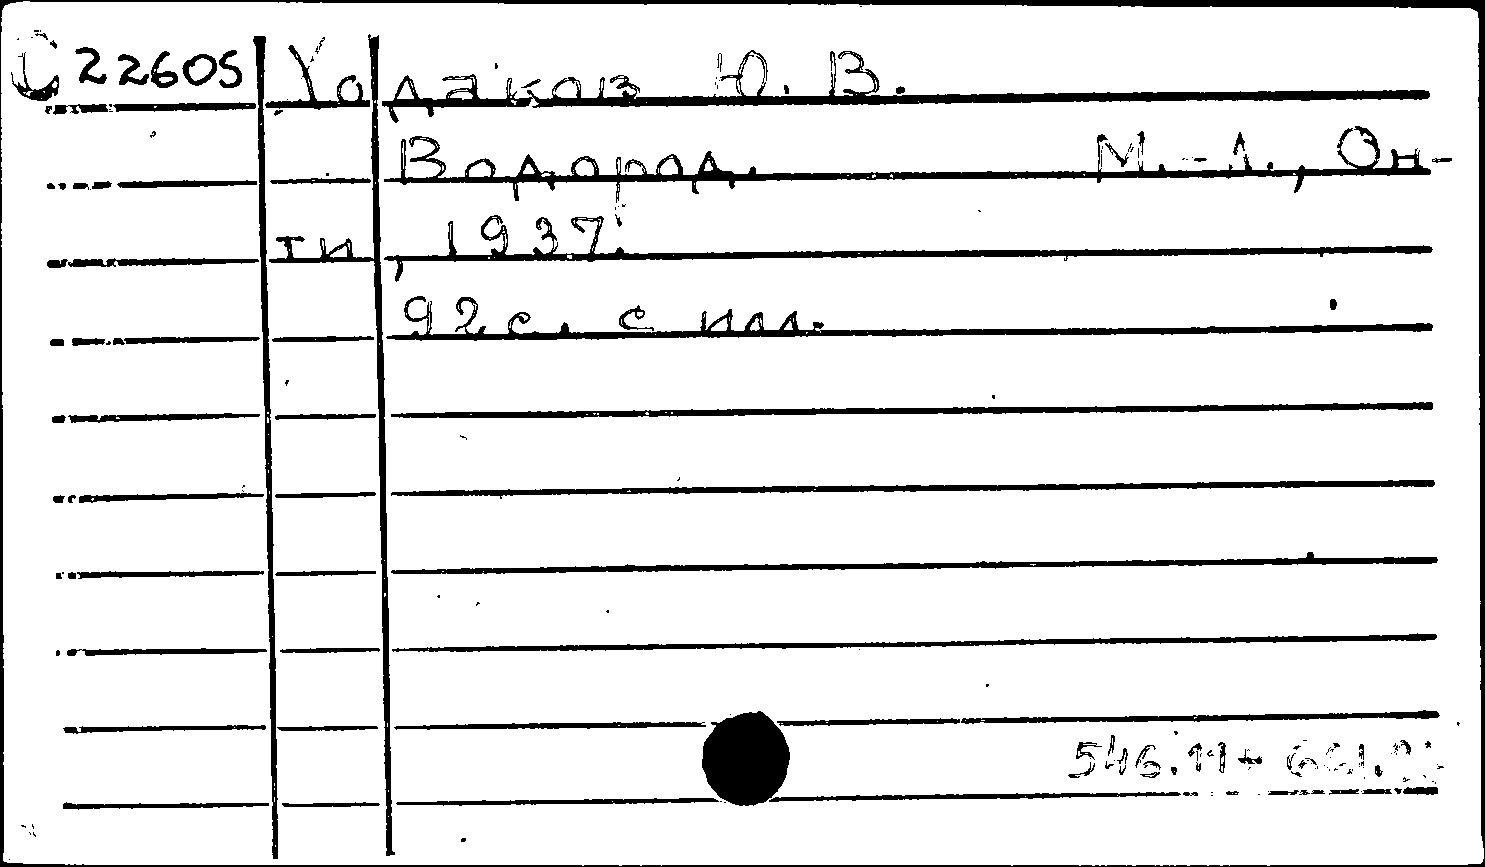 С22605 Ходаков Ю. В.
Водород. М.-Л., Он-
ти, 1937.
92с. с илл.
546.11+661.